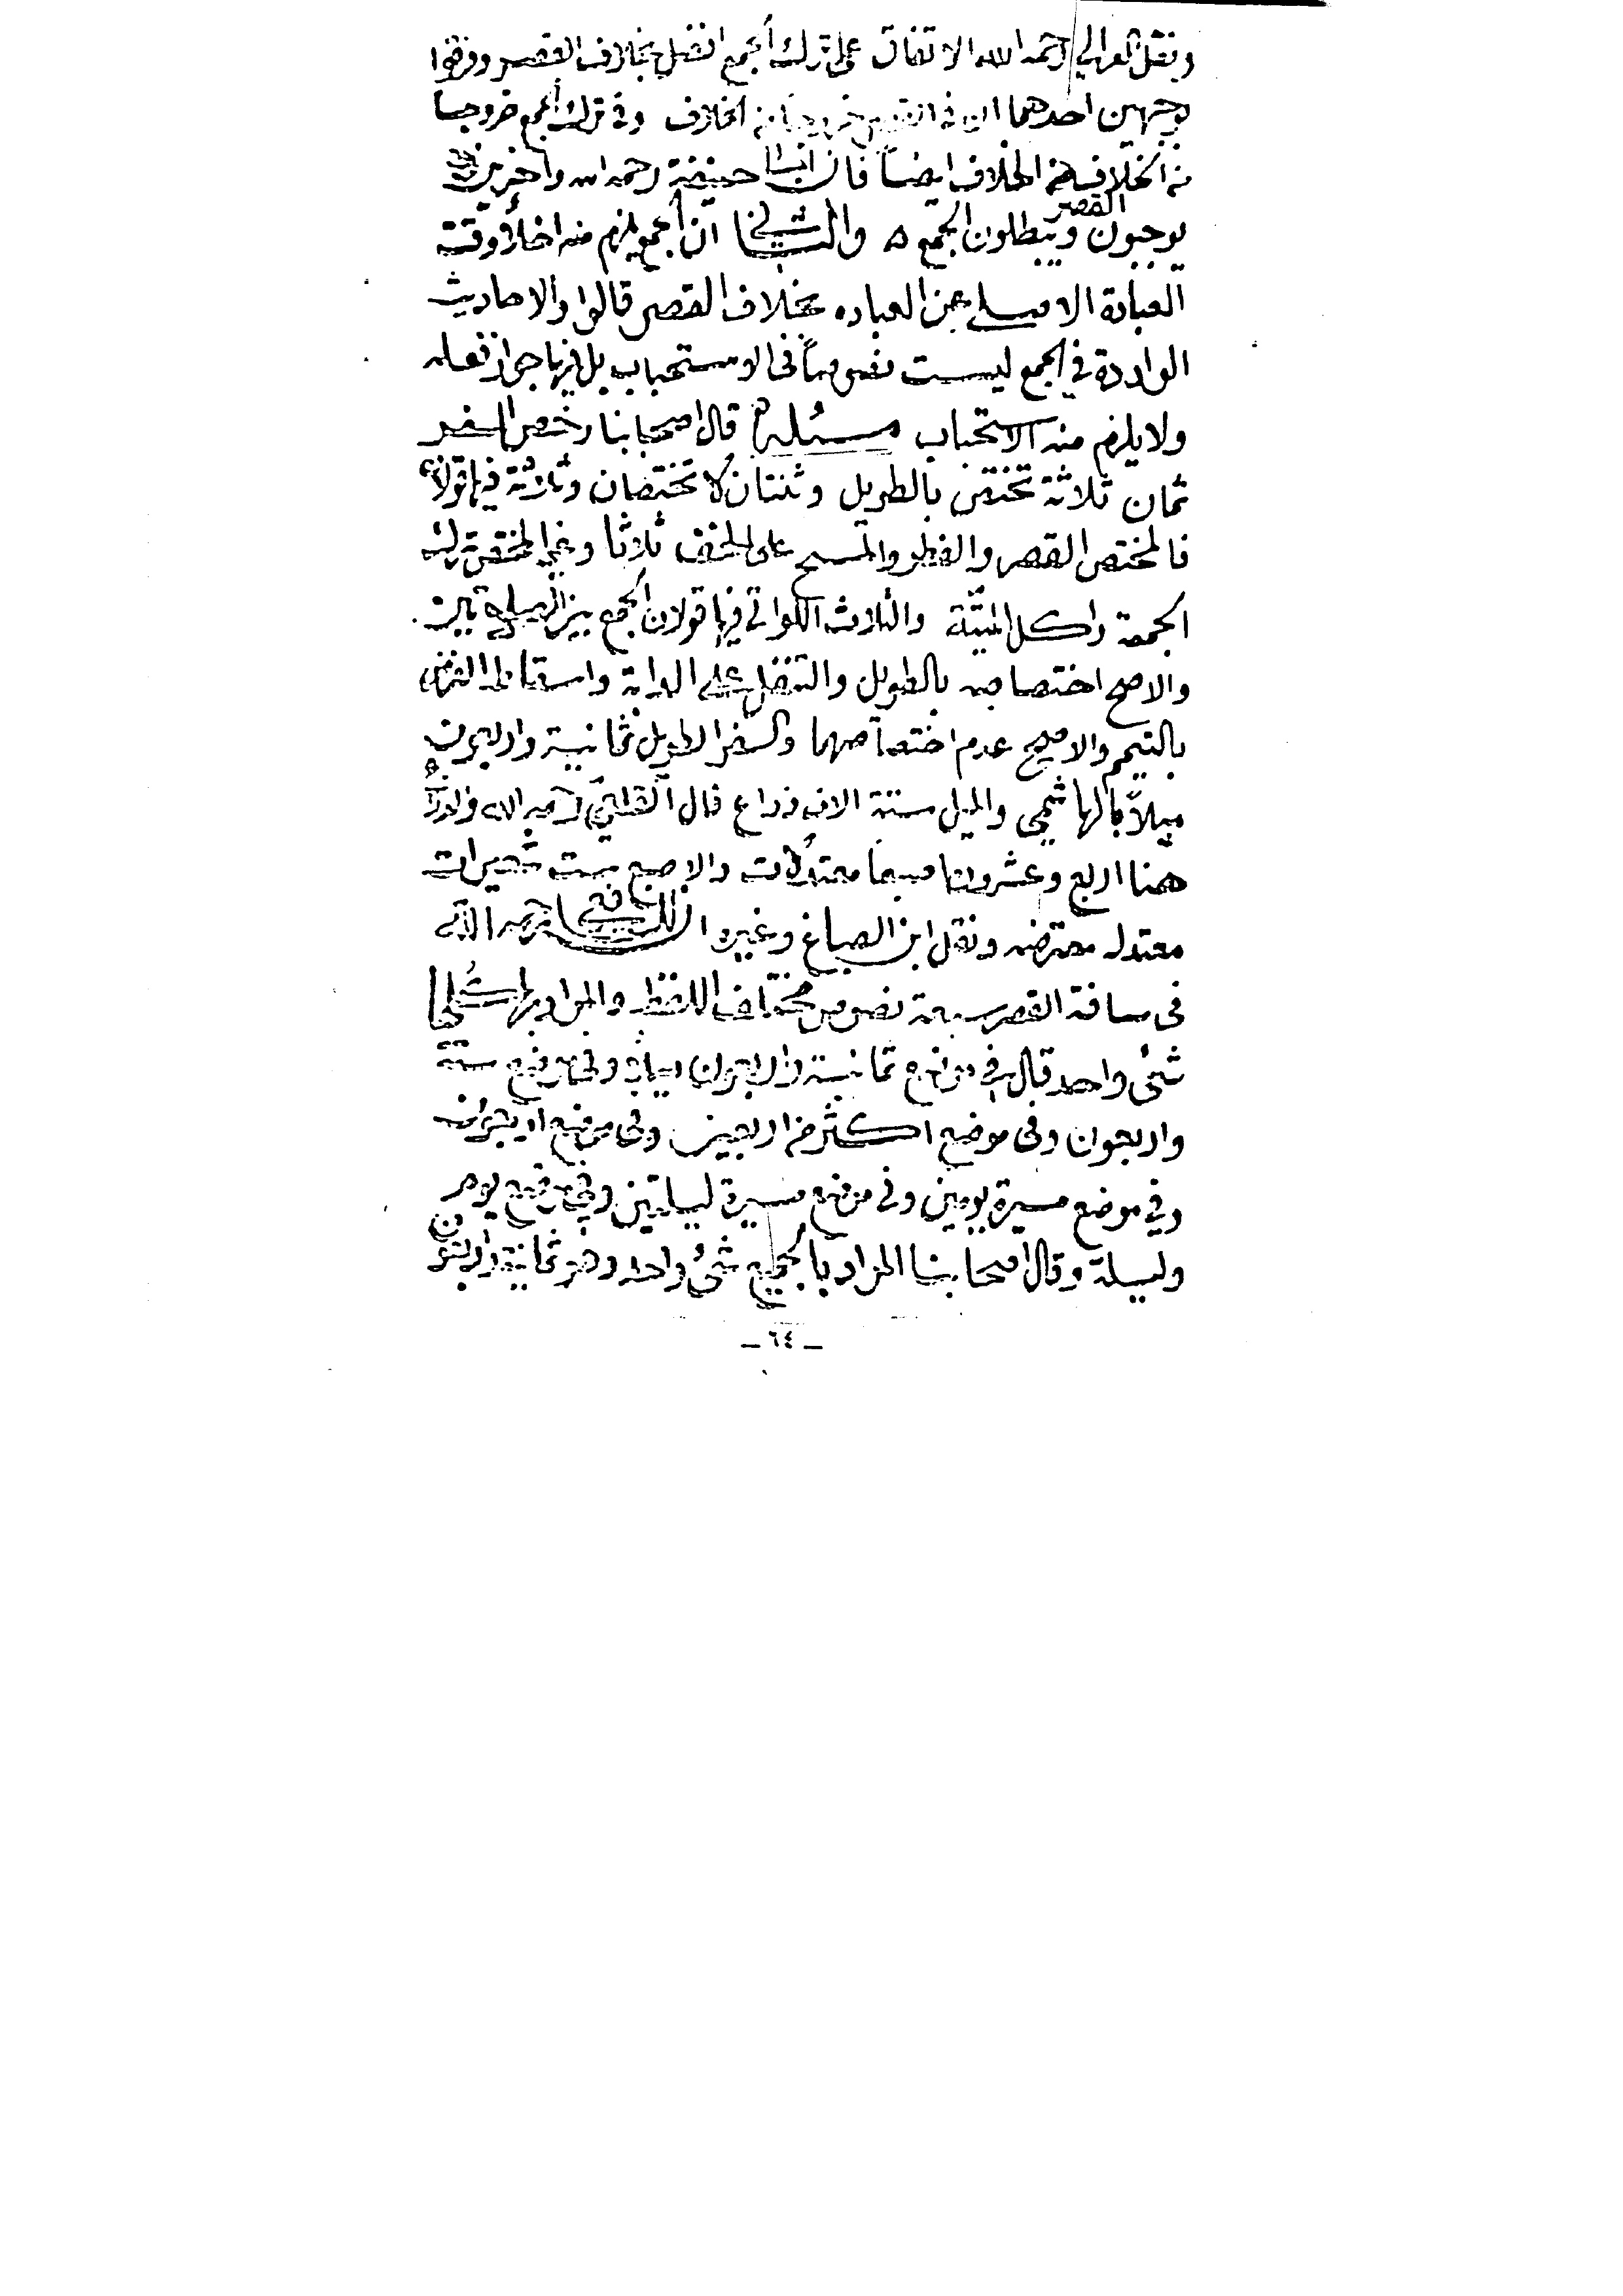 ونقل الغزالي رحمه الله الاتفاق على ترك الجمع افضل بخلاف القصر وفرقوا
بوجهين احدهما ان في القصر خروجا من الخلاف وفي ترك الجمع خروجا
من الخلاف ايضا فان ابا حنيفة رحمه الله واخرين
يوجبون القصر ويبطلون الجمع ه والثاني ان الجمع يلزم منه اخلاء وقت
العبادة الاصلي عن العباده بخلاف القصر قالوا والاحاديث
الواردة في الجمع ليست نصوصا في الاستحباب بل فيها جواز فعله
ولا يلزم منه الاستحباب مسئلة قال اصحابنا رخص السفر
ثمان ثلاثة تختص بالطويل وثنتان لا تختصان وثلاثة فيها قولان
فالمختص القصر والفطر والمسح على الخف ثلاثا وغير المختص ترك
الجمعة واكل الميتة والثلاث اللواتي فيها قولان الجمع بين الصلاتين
والاصح اختصاصه بالطويل والتنفل على الدابة واسقاط الفرض
بالتيمم والاصح عدم اختصاصهما والسفر الطويل ثمانية واربعون
ميلا بالهاشمي والميل ستة الاف ذراع قال رحمه الله
هنا اربع وعشرون اصبعا معتدلات والاصبع ست شعيرات
معتدله معترضه ونقل ابن الصباغ وغيره ان للشافعي رحمه الله
في مسافة القصر سبعة نصوص مختلف اللفظ والمراد بها كلها
شئ واحد قال في موضع ثمانية واربعون ميلا وفي موضع ستة
واربعون وفي موضع اكثر من اربعين وفي موضع اربعون
وفي موضع مسيرة يومين وفي موضع مسيرة ليلتين وفي موضع يوم
وليلة وقال اصحابنا المراد بالجميع شئ واحد وهو ثمانية واربعون
_ ٦٤ _